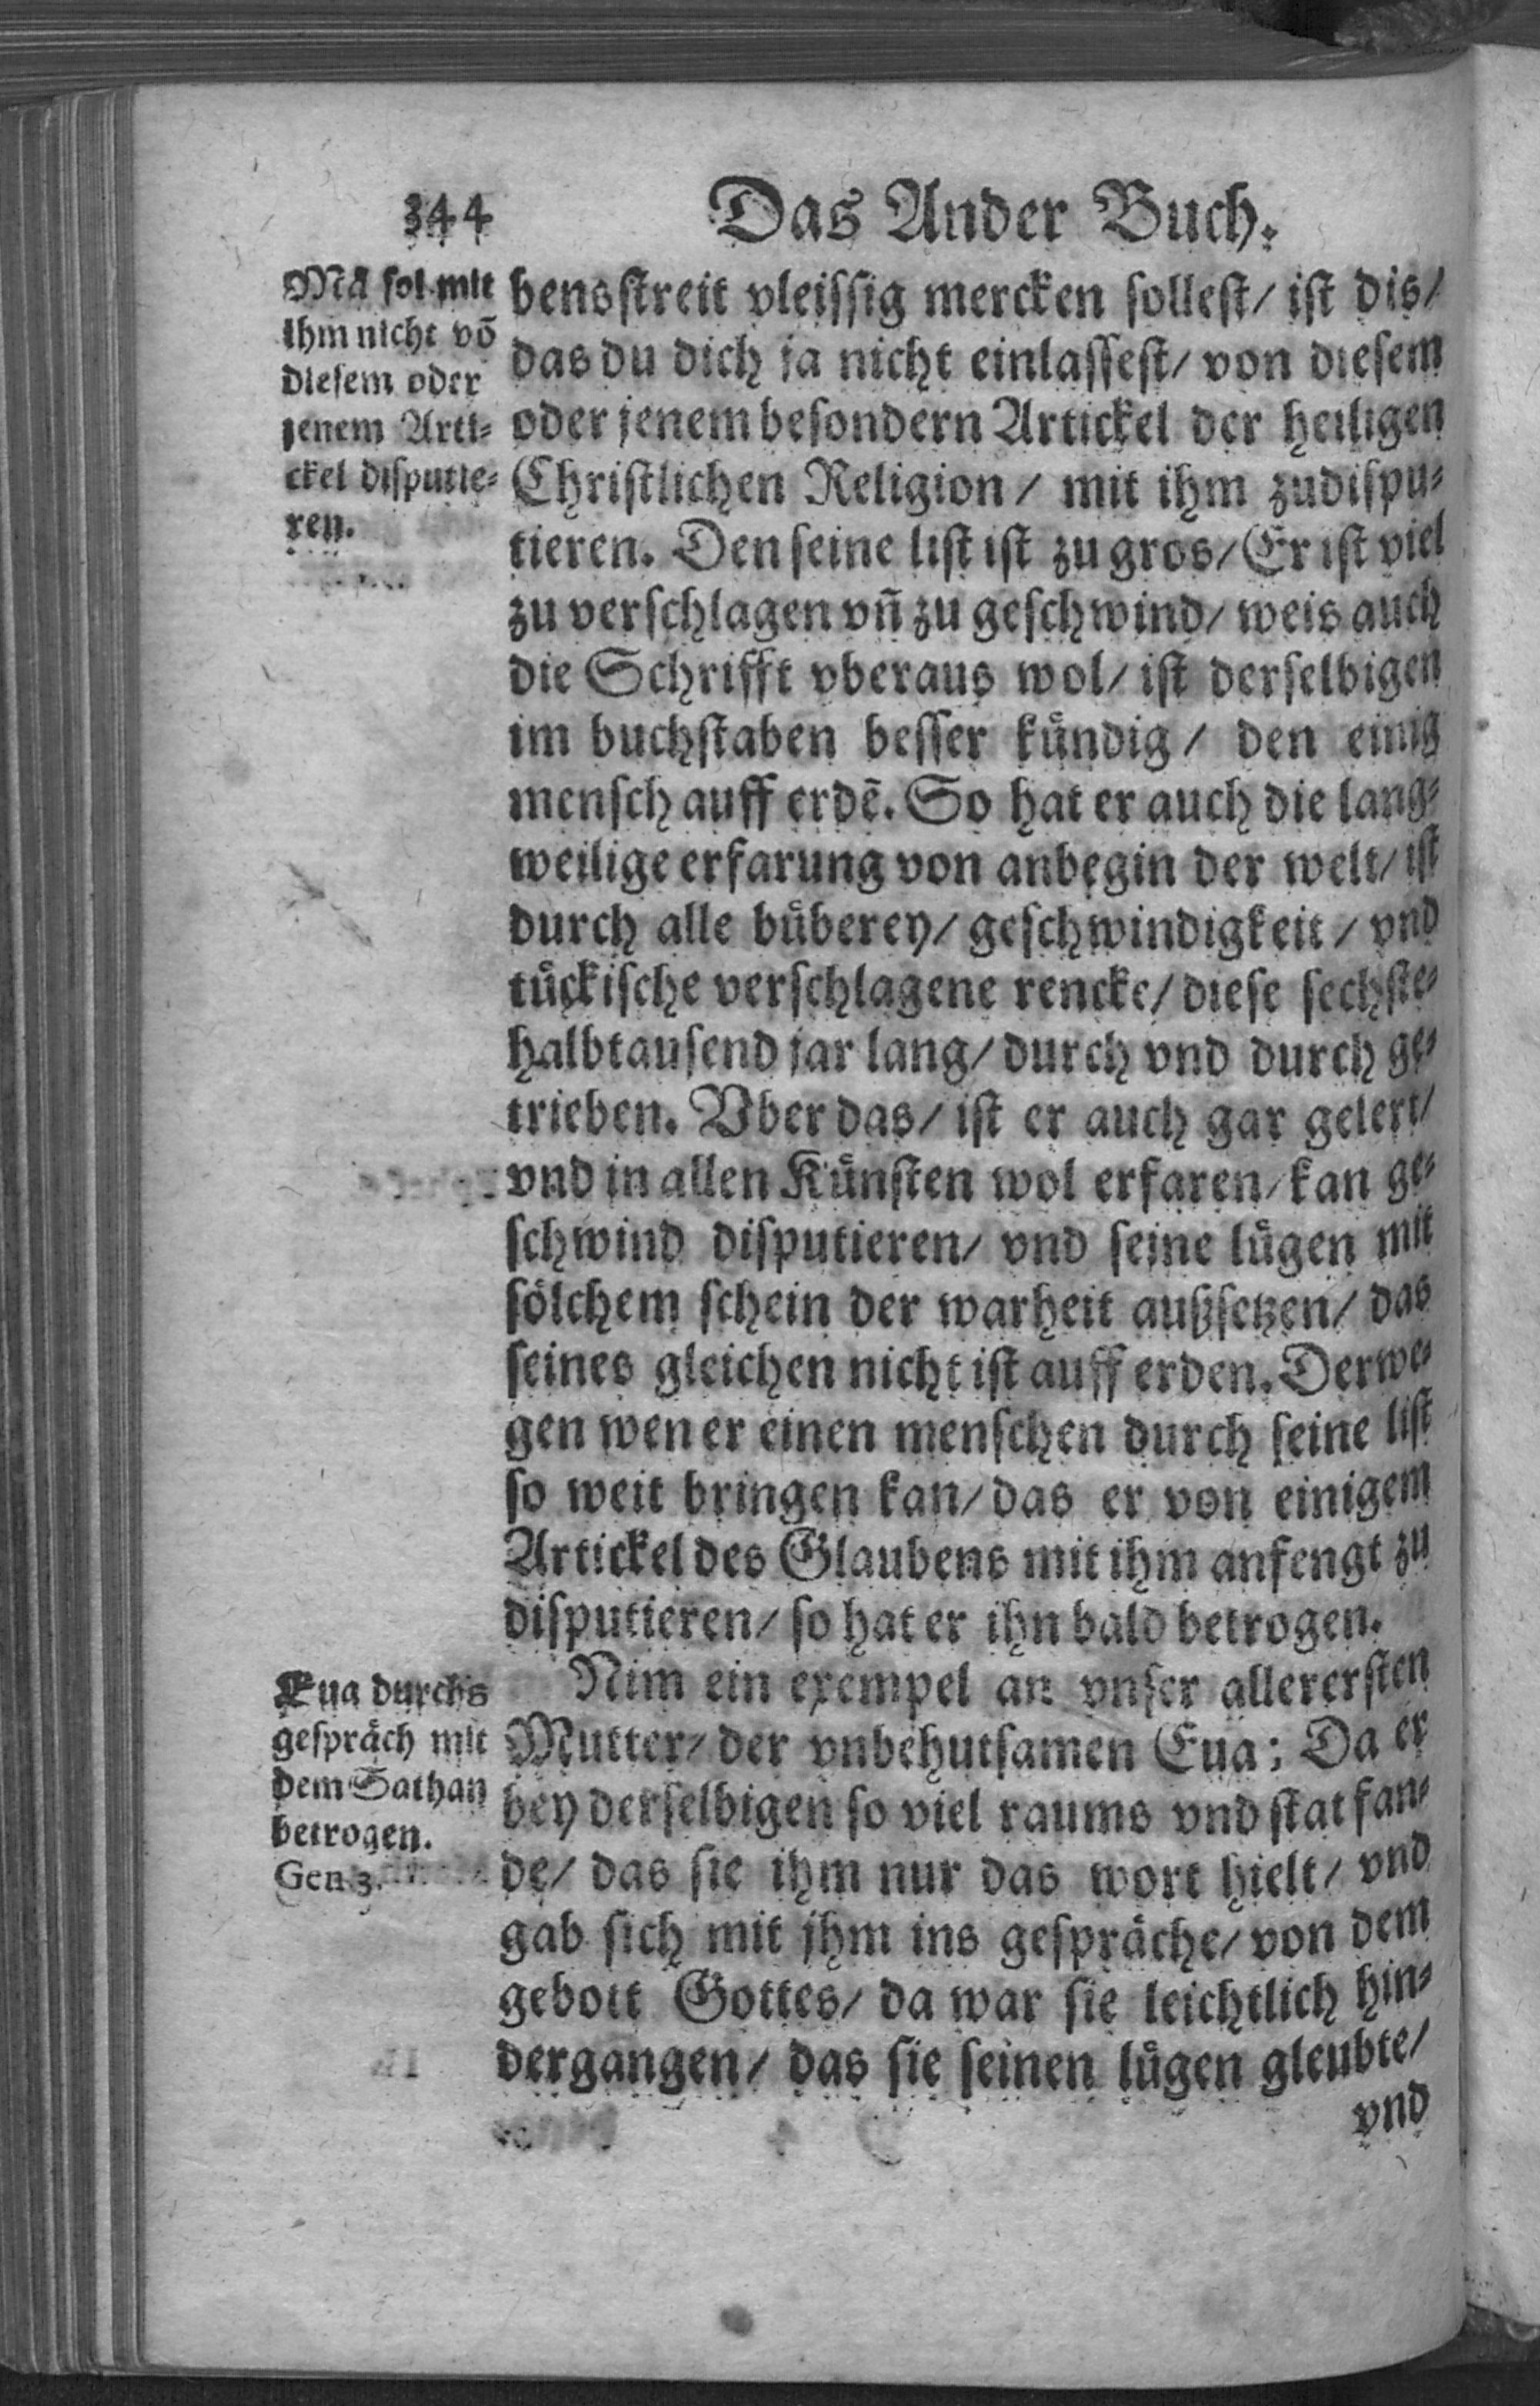 344 Das Ander Buch.
Mā sol mit
ihm nicht vō
diesem oder
jenem Arti-
ckel disputie-
ren.
bensstreit vleissig mercken sollest/ ist dis/
das du dich ja nicht einlassest/ von diesem
oder jenem besondern Artickel der heiligen
Christlichen Religion/ mit ihm zudispu-
tieren. Den seine list ist zu gros/ Er ist viel
zu verschlagen vn̄ zu geschwind/ weis auch
die Schrifft vberaus wol/ ist derselbigen
im buchstaben besser kuͤndig/ den einig
mensch auff erdē. So hat er auch die lang-
weilige erfarung von anbegin der welt/ ist
durch alle buͤberey/ geschwindigkeit/ vnd
tuͤckische verschlagene rencke/ diese sechste-
halbtausend jar lang/ durch vnd durch ge-
trieben. Vber das/ ist er auch gar gelert/
vnd in allen Kuͤnsten wol erfaren/ kan ge-
schwind disputieren/ vnd seine luͤgen mit
soͤlchem schein der warheit außsetzen/ das
seines gleichen nicht ist auff erden. Derwe-
gen wen er einen menschen durch seine list
so weit bringen kan/ das er von einigem
Artickel des Glaubens mit ihm anfengt zu
disputieren/ so hat er ihn bald betrogen.
Eua durchs
gespraͤch mit
dem Sathan
betrogen.
Gen. 3.
Nim ein exempel an vnser allerersten
Mutter/ der vnbehutsamen Eua: Da er
bey derselbigen so viel raums vnd stat fan-
de/ das sie ihm nur das wort hielt/ vnd
gab sich mit jhm ins gespraͤche/ von dem
gebott Gottes/ da war sie leichtlich hin-
dergangen/ das sie seinen luͤgen gleubte/
vnd